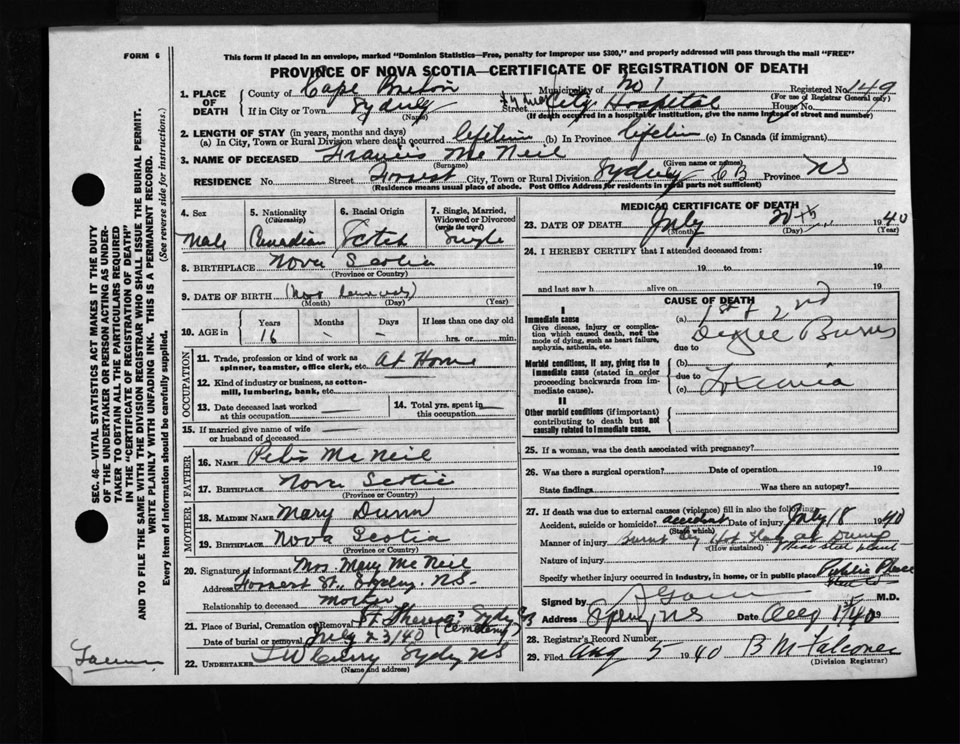 FORM 6
This form if placed in an envelope, marked "Dominion Statistics—Free, penalty for improper use $300," and properly addressed will pass through the mail "FREE"
PROVINCE OF NOVA SCOTIA—CERTIFICATE OF REGISTRATION OF DEATH
1. PLACE OF DEATH
County of Cape Breton Municipality of No 1 Registered No. 149
(For use of Registrar General only)
If in City or Town Sydney Street City Hospital House No.
(Name) (If death occurred in a hospital or institution, give the name instead of street and number)
2. LENGTH OF STAY (in years, months and days)
(a) In City, Town or Rural Division where death occurred lifetime (b) In Province lifetim (c) In Canada (if immigrant)
3. NAME OF DECEASED Francis Mc Neil
(Surname) (Given name or names)
RESIDENCE No. Street Forrest City, Town or Rural Division Sydney CB Province NS
(Residence means usual place of abode. Post Office Address for residents in rural parts not sufficient)
4. Sex
Male
5. Nationality (Citizenship)
Canadian
6. Racial Origin
Scotch
7. Single, Married, Widowed or Divorced (write the word)
Single
8. BIRTHPLACE Nova Scotia
(Province or Country)
9. DATE OF BIRTH (
(Month) (Day) (Year)
10. AGE in
Years Months Days If less than one day old
16 — — hrs. or min.
OCCUPATION
11. Trade, profession or kind of work as spinner, teamster, office clerk, etc. At Home
12. Kind of industry or business, as cotton-mill, lumbering, bank, etc.
13. Date deceased last worked at this occupation —
14. Total yrs. spent in this occupation —
15. If married give name of wife or husband of deceased —
FATHER
16. NAME Peter Mc Neil
17. BIRTHPLACE Nova Scotia
(Province or Country)
MOTHER
18. MAIDEN NAME Mary Dunn
19. BIRTHPLACE Nova Scotia
(Province or Country)
20. Signature of informant Mrs. Mary Mc Neil
Address Forrest St., Sydney. N.S.
Relationship to deceased Mother
21. Place of Burial, Cremation or Removal St Theresa's Sydney CB
(Cemetery)
Date of burial or removal July 23/40
22. UNDERTAKER T W Curry Sydney NS
(Name and address)
MEDICAL CERTIFICATE OF DEATH
23. DATE OF DEATH July 20th 1940
(Month) (Day) (Year)
24. I HEREBY CERTIFY that I attended deceased from:
19 to 19
and last saw h alive on 19
CAUSE OF DEATH
I
Immediate cause
Give disease, injury or complication which caused death, not the mode of dying, such as heart failure, asphyxia, asthenia, etc.
(a) 1st & 2nd Degree Burns
due to
Morbid conditions, if any, giving rise to immediate cause (stated in order proceeding backwards from immediate cause).
(b)
due to
(c) Toxemia
II
Other morbid conditions (if important) contributing to death but not causally related to immediate cause.
25. If a woman, was the death associated with pregnancy?
26. Was there a surgical operation? Date of operation 19
State findings Was there an autopsy?
27. If death was due to external causes (violence) fill in also the following:
Accident, suicide or homicide? accident Date of injury July 18 1940
(State which)
Manner of injury burnt by Hot Slag at Dump
(How sustained) near steel plant
Nature of injury
Specify whether injury occurred in industry, in home, or in public place Public Place
Signed by M.D.
Address Sydney NS Date Aug 1st 1940
28. Registrar's Record Number
29. Filed Aug 5 1940 B M Falconer
(Division Registrar)
SEC. 46—VITAL STATISTICS ACT MAKES IT THE DUTY OF THE UNDERTAKER OR PERSON ACTING AS UNDERTAKER TO OBTAIN ALL THE PARTICULARS REQUIRED IN THE "CERTIFICATE OF REGISTRATION OF DEATH"
AND TO FILE THE SAME WITH THE DIVISION REGISTRAR WHO SHALL ISSUE THE BURIAL PERMIT.
WRITE PLAINLY WITH UNFADING INK. THIS IS A PERMANENT RECORD.
Every item of information should be carefully supplied. (See reverse side for instructions.)